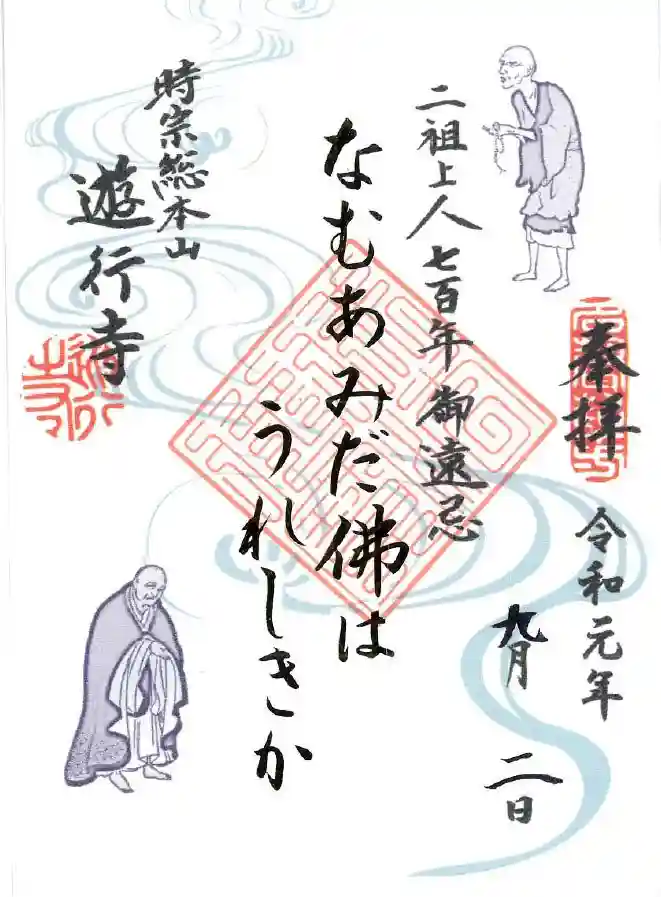 奉拝
令和元年
九月
二日
二祖上人七百年御遠忌
なむあみだ佛は
うれしきか
時宗総本山
遊行寺
遊行寺